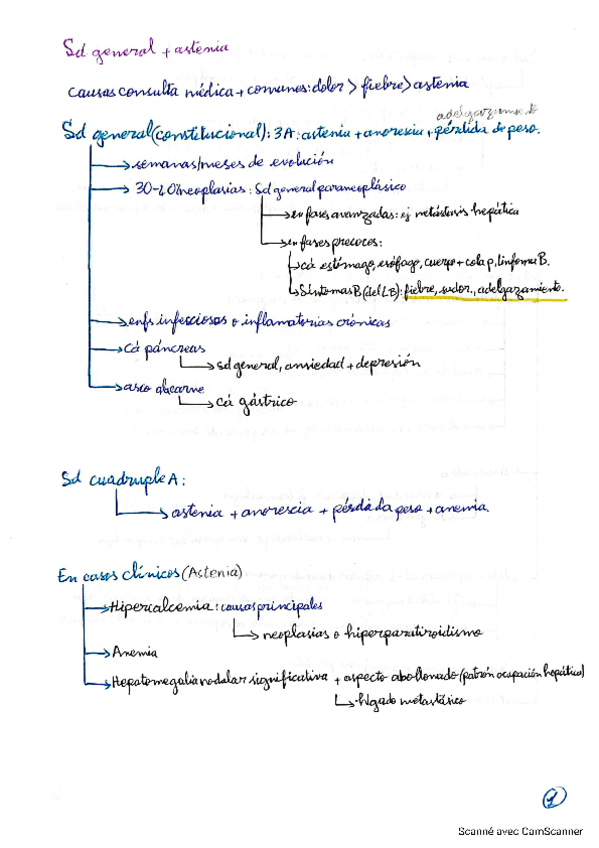 Sd general + astenia
causas consulta médica + comunes: dolor > fiebre > astenia
adelgazamiento
Sd general (constitucional): 3A: astenia + anorexia + pérdida de peso.
semanas/meses de evolución
30-40% neoplasias: Sd general paraneoplásico
en fases avanzadas: ej metástasis hepática
en fases precoces:
cá estómago, esófago, cuerpo + cola p, linfoma B.
Síntomas B (del LB): fiebre, sudor., adelgazamiento.
enfs infecciosas o inflamatorias crónicas
Cá páncreas
sd general, ansiedad + depresión
asco a la carne
cá gástrico
Sd cuadruple A:
astenia + anorexia + pérdida peso + anemia.
En casos clínicos (Astenia)
Hipercalcemia: causas principales
neoplasias o hiperparatiroidismo
Anemia
Hepatomegalia nodular significativa + aspecto abollonado (patrón ocupación hepática)
hígado metastásico
1
Scanné avec CamScanner